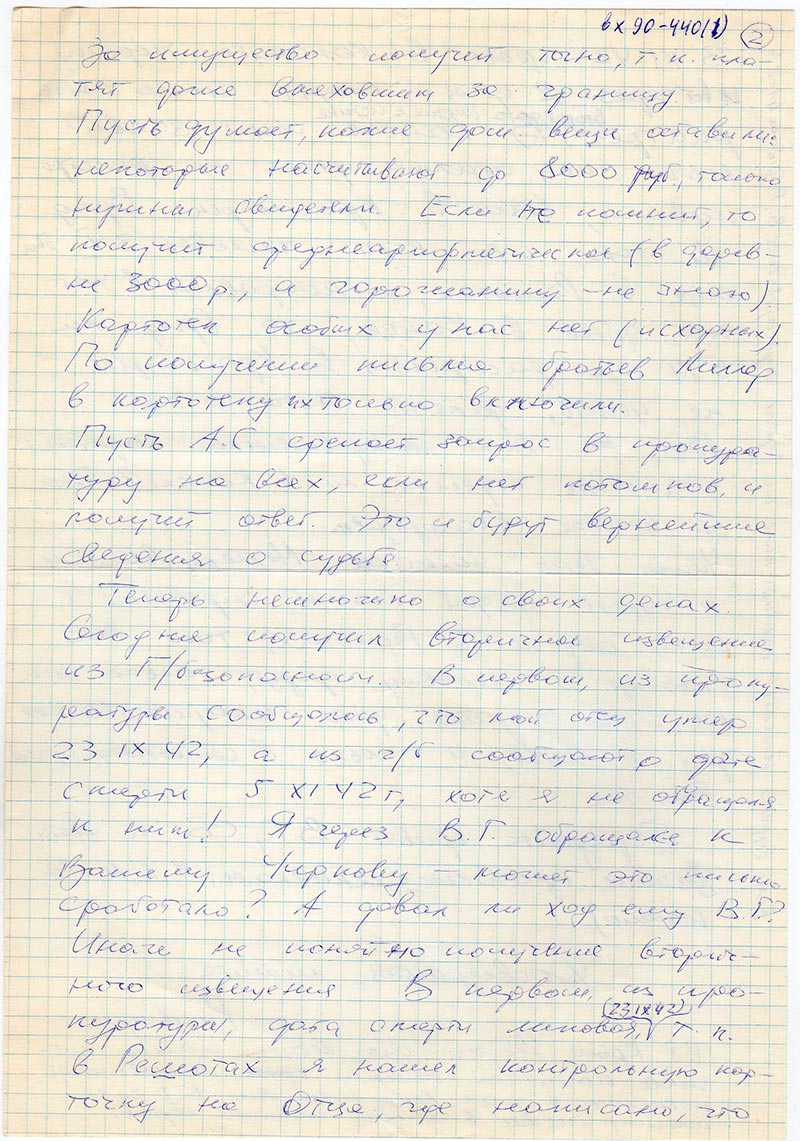 вх 90-440(1) 2
За имущество получит точно, т.к. пла-
тят даже выехавшим за границу.
Пусть думает, какие дом. вещи оставили:
некоторые насчитывают до 8000 руб, только
нужны свидетели. Если не помнит, то
получит среднеарифметическое (в дерев-
не 3000 р., а горожанину - не знаю).
Картотек особых у нас нет (исходных).
По получении письма братьев
в картотеку их только включили.
Пусть А.С. сделает запрос в прокура-
туру на всех, если нет потомков, и
получит ответ. Это и будут вернейшие
сведения о судьбе
Теперь немножко о своих делах.
Сегодня получил вторичное извещение
из Г/безопасности. В первом, из проку-
ратуры сообщалось, что мой отец умер
23 IX 42, а из г/б сообщают о дате
смерти 5 XI 42 г, хотя я не обращался
к ним! Я через В.Г. обращался к
Вашему Чиркову - может это письмо
сработало? А давал ли ход ему В.Г.?
Иначе не понятно получение вторич-
ного извещения В первом, из про-
куратуры, дата смерти липовая, (23 IX 42) т.к.
в Решотах я нашел контрольную кар-
точку на Отца, где написано, что